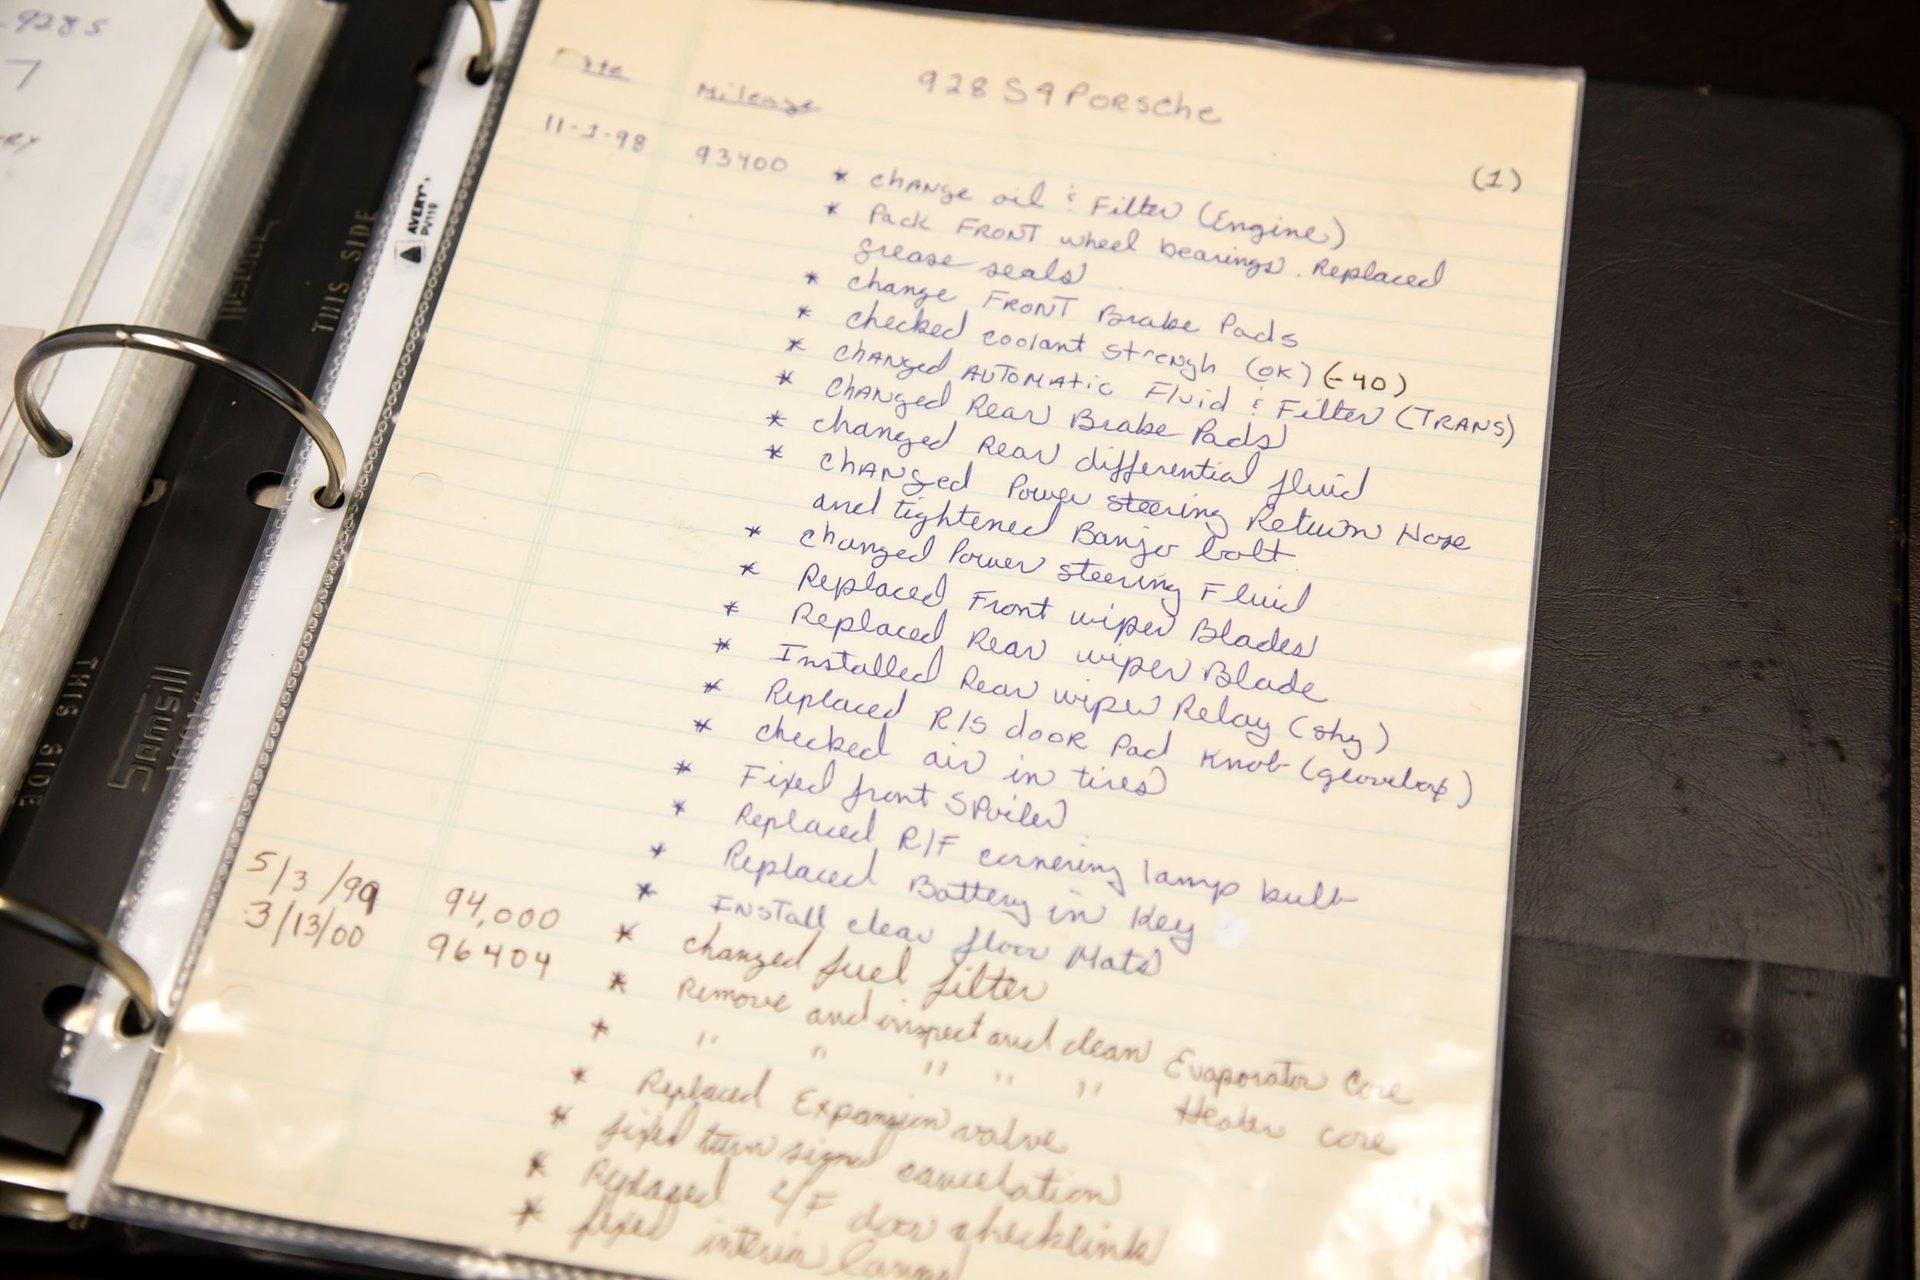 928S
7
RY
THIS SIDE
AVERY.
PV119
THIS SIDE
Samsill
928 S4 PORSche
Mileage
(1)
11-1-98 93400 * CHANge oil & Filter (Engine)
* Pack FRONT wheel bearings. Replaced
grease seals
* change FRONT Brake Pads
* checked coolant strengh (OK) (-40)
* CHANged AUTOMAtic Fluid & Filter (TRANS)
* CHANged Rear Brake Pads
* changed Rear differential fluid
* CHANged Power steering Return Hose
and tightened Banjo bolt.
* changed Power steering Fluid
* Replaced Front wiper Blades
* Replaced Rear wiper Blade
* Installed Rear wiper Relay
* Replaced R/S dooR Pad Knob (glovebox)
* checked air in tires
* Fixed front SPoiler
* Replaced R/F cornering lamp bulb
* Replaced Battery in Key
* INSTall clear floor Mats
5/3/99 94,000 * changed fuel filter
3/13/00 96404 * Remove and inspect and clean Evaporator Core
* " " " " " Heater core
* Replaced Expansion valve
* fixed turn signal cancelation
* Replaced door checklink
* fixed interior